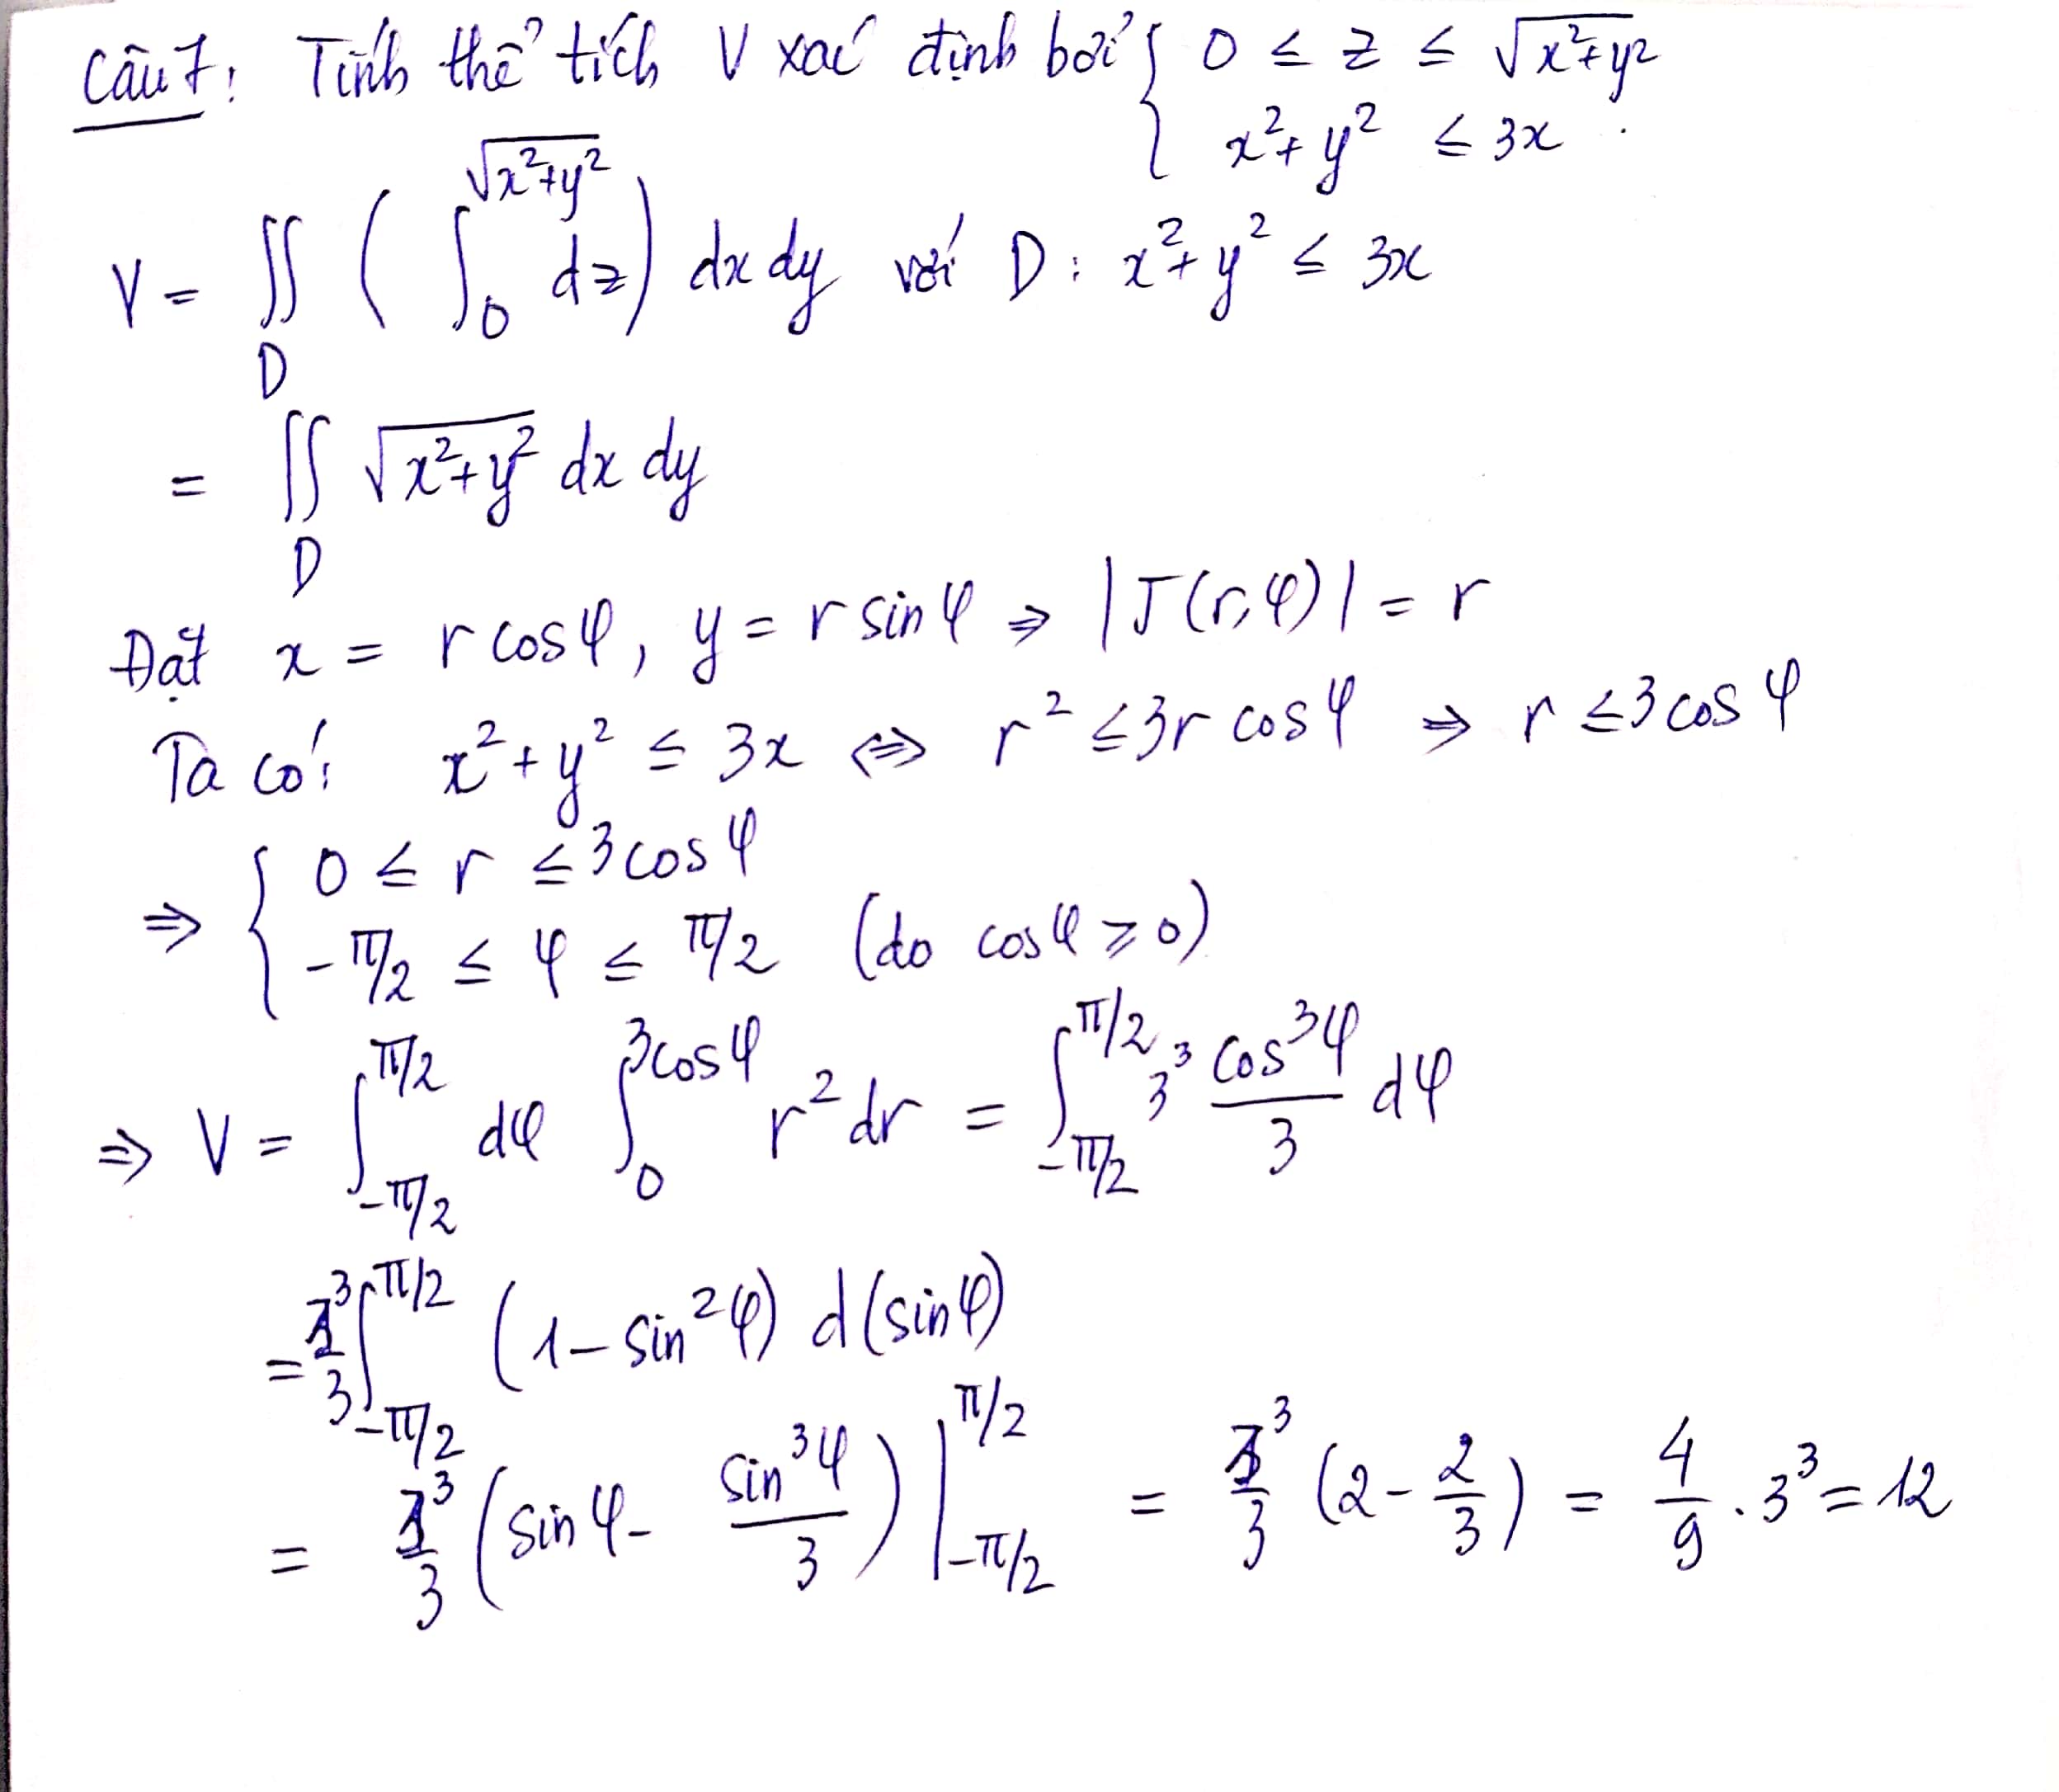 Câu 7: Tính thể tích V xác định bởi { 0 ≤ z ≤ √(x²+y²)
x²+y² ≤ 3x .
V = ∬_D ( ∫_0^{√(x²+y²)} dz ) dx dy với D : x²+y² ≤ 3x
= ∬_D √(x²+y²) dx dy
Đặt x = r cosφ, y = r sinφ ⇒ |J(r,φ)| = r
Ta có: x²+y² ≤ 3x ⇔ r² ≤ 3r cosφ ⇒ r ≤ 3cosφ
⇒ { 0 ≤ r ≤ 3cosφ
-π/2 ≤ φ ≤ π/2 (do cosφ ≥ 0)
⇒ V = ∫_{-π/2}^{π/2} dφ ∫_0^{3cosφ} r² dr = ∫_{-π/2}^{π/2} 3³ cos³φ/3 dφ
= 3³/3 ∫_{-π/2}^{π/2} (1-sin²φ) d(sinφ)
= 3³/3 (sinφ - sin³φ/3) |_{-π/2}^{π/2} = 3³/3 (2 - 2/3) = 4/9 . 3³ = 12